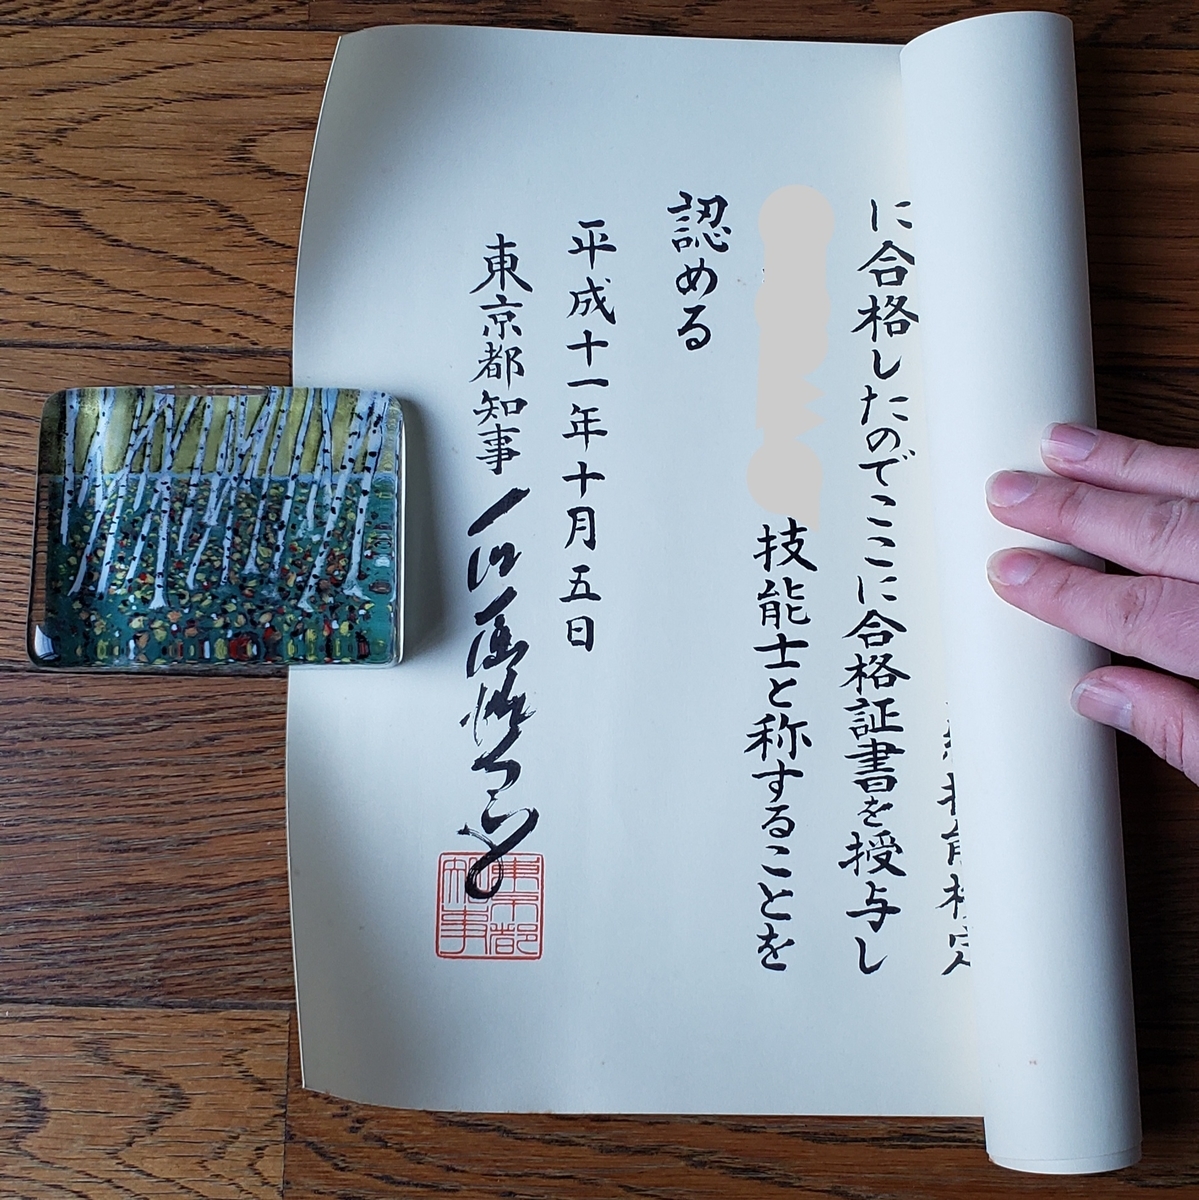 技能検定
に合格したのでここに合格証書を授与し
技能士と称することを
認める
平成十一年十月五日
東京都知事 石原慎太郎
東京都知事